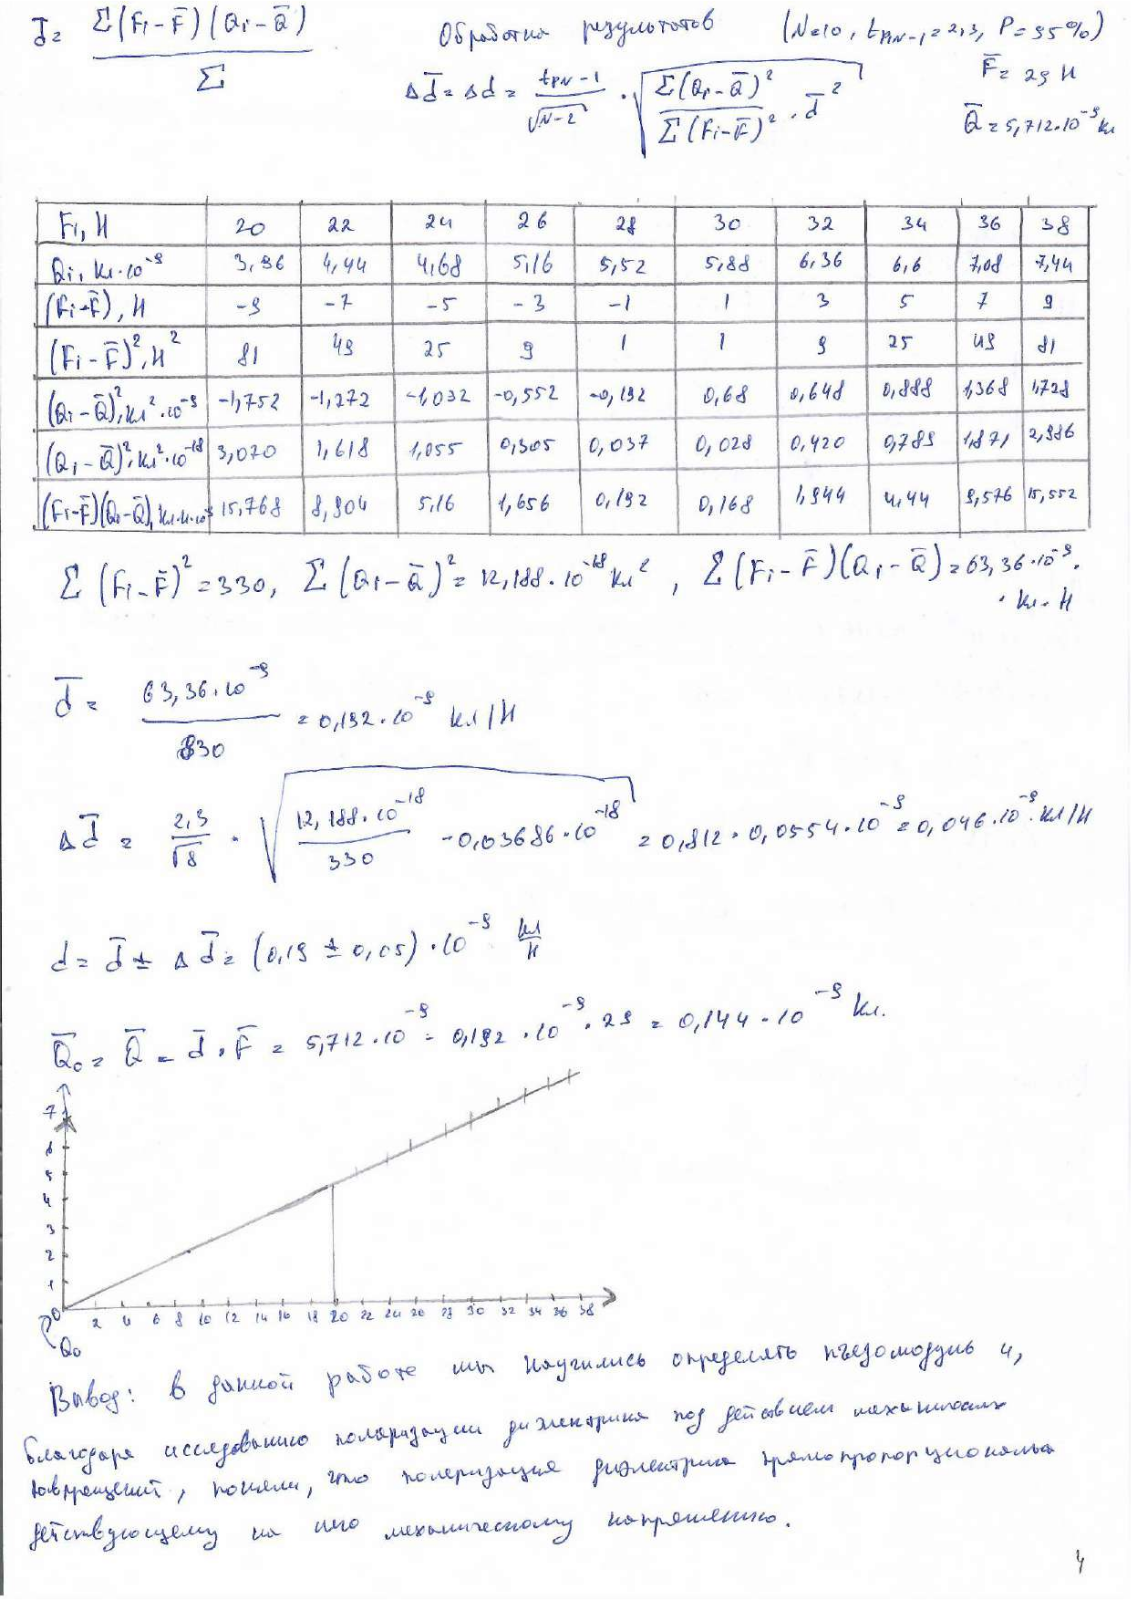 d̅ = Σ(Fi-F̅)(Qi-Q̅) / Σ
Обработка результатов (N=10, tPN-1=2,3, P=95%)
Δd̅ = Δd = tPN-1/√N-2 · √Σ(Qi-Q̅)²/Σ(Fi-F̅)² · d̅²
F̅ = 29 Н
Q̅ = 5,712·10⁻⁹ Кл
Fi, Н 20 22 24 26 28 30 32 34 36 38
Qi, Кл·10⁻⁹ 3,96 4,44 4,68 5,16 5,52 5,88 6,36 6,6 7,08 7,44
(Fi-F̅), Н -9 -7 -5 -3 -1 1 3 5 7 9
(Fi-F̅)², Н² 81 49 25 9 1 1 9 25 49 81
(Qi-Q̅)², Кл²·10⁻⁹ -1,752 -1,272 -1,032 -0,552 -0,192 0,68 0,648 0,888 1,368 1,728
(Qi-Q̅)², Кл²·10⁻¹⁸ 3,070 1,618 1,055 0,305 0,037 0,028 0,420 0,789 1,871 2,986
(Fi-F̅)(Qi-Q̅), Кл·Н·10⁻⁹ 15,768 8,904 5,16 1,656 0,192 0,168 1,944 4,44 9,576 15,552
Σ(Fi-F̅)² = 330, Σ(Qi-Q̅)² = 12,188·10⁻¹⁸ Кл², Σ(Fi-F̅)(Qi-Q̅) = 63,36·10⁻⁹·
· Кл·Н
d̅ = 63,36·10⁻⁹ / 330 = 0,192·10⁻⁹ Кл/Н
Δd̅ = 2,3/√8 · √12,188·10⁻¹⁸/330 - 0,03686·10⁻¹⁸ = 0,812·0,0554·10⁻⁹ = 0,046·10⁻⁹ Кл/Н
d = d̅ ± Δd̅ = (0,19 ± 0,05)·10⁻⁹ Кл/Н
Q̅₀ = Q̅ - d̅·F̅ = 5,712·10⁻⁹ - 0,192·10⁻⁹·29 = 0,144·10⁻⁹ Кл.
7
6
5
4
3
2
1
0
2 4 6 8 10 12 14 16 18 20 22 24 26 28 30 32 34 36 38
Q₀
Вывод: в данной работе мы научились определять пъезомодуль и,
благодаря исследованию поляризации диэлектрика под действием механических
поняли, что поляризация диэлектрика прямопропорциональна
действующему на него механическому напряжению.
4